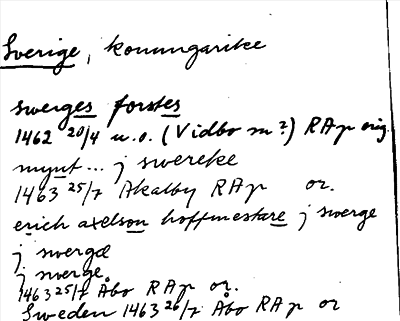 Sverige, konungarike
swerges forstes
1462 20/4 u.o. (Vidbo sn?) RAp orig.
mynt... j swereke
1463 25/7 Åkalby RAp or.
erich axelson hoffmestare j swerge
j swergæ
j swerge.
1463 25/7 Åbo RAp or.
Sweden 1463 26/7 Åbo RAp or